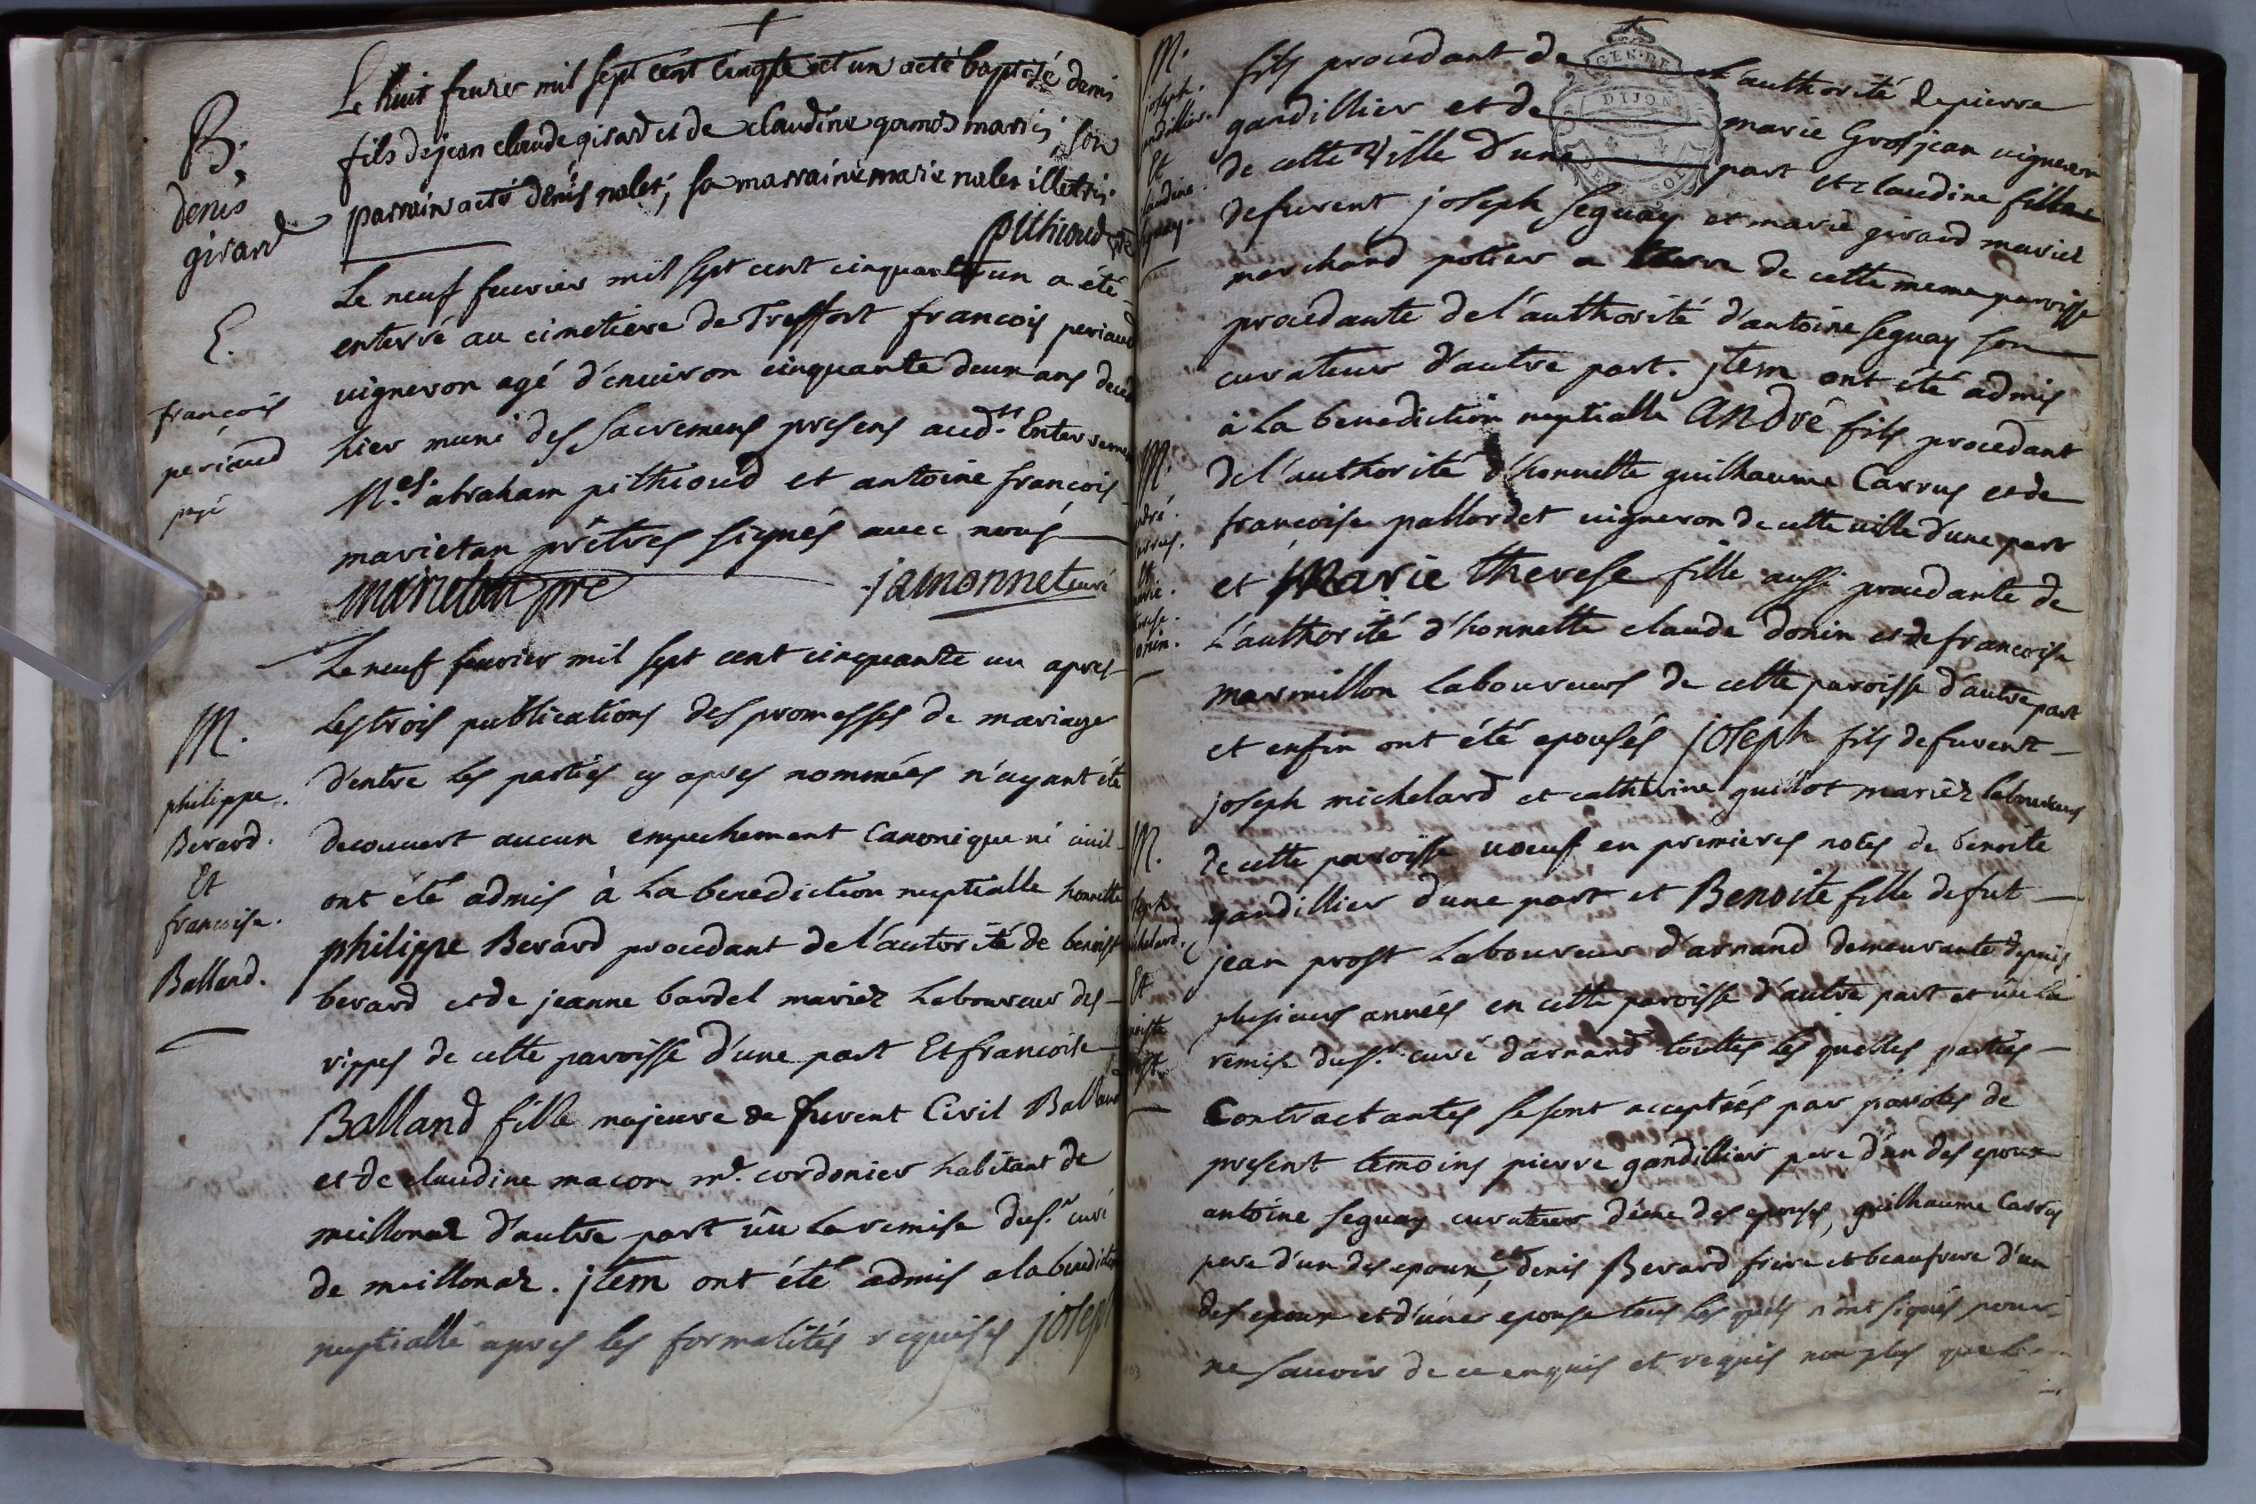 Le huit feurier mil sept cent cinqte et un acté baptisé denis
B.
denis
girard
fils de jean claude girard et de claudine gomod mariés, son
parrain acté denis nalet, sa marraine marie nalet illetrés.
pithioud ptre
E.
françois
periaud
pagé
Le neuf feurier mil sept cent cinquante un a été
enterré au cimetiere de Treffort francois periaud
uigneron agé d'enuiron cinquante deux ans decedé
hier muni des sacremens presens aud.t Enterrement
M.es abraham pithioud et antoine françois
marietan prêtres signés auec nous
marietan pre jamonnet curé
M.
philippe.
Berard.
Et
francoise.
Balland.
Le neuf feurier mil sept cent cinquante un apres
les trois publications des promesses de mariage
d'entre les parties cy apres nommées n'ayant été
decouuert aucun empechement Canonique ni ciuil
ont été admis à la benediction nuptialle honnette
philippe Berard procedant de l'autorité de benoist
berard et de jeanne bardel mariez Laboureur des
rippes de cette paroisse d'une part Et francoise
Balland fille majeure de furent Civil Balland
et de claudine macon m.d cordonier habitant de
meillonaz d'autre part ûu la remise du s.r curé
de meillonaz. jtem ont été admis a la benediction
nuptialle apres les formalités requises joseph
M.
joseph.
gandillier.
Et
claudine.
seguay.
GEN. DE
DIJON
fils procedant de l'authorité de pierre
gandillier et de marie Grosjean uigneron
de cette Ville d'une part et claudine fille
de furent joseph seguay et marie girard mariez
marchand potier a terre de cette meme paroisse
procedante de l'authorité d'antoine seguay son
curateur d'autre part. jtem ont été admis
à la benediction nuptialle André fils procedant
M.
andré.
Carrus.
Et
marie.
therese.
donin.
de l'authorité d'honnette guilhaume Carrus et de
françoise pallordet uigneron de cette uille d'une part
et Marie therese fille aussi procedante de
L'authorité d'honnette claude donin et de francoise
marmillon laboureurs de cette paroisse d'autre part
et enfin ont été epousés joseph fils de furent
joseph michelard et catherine guillot mariez laboureurs
M.
joseph.
michelard.
Et
benoiste
prost.
de cette paroisse uoeuf en premieres notes de benoite
gandillier d'une part et Benoite fille de fut
jean prost Laboureur d'arnand demeurante depuis
plusieurs années en cette paroisse d'autre part et ûu la
remise du s.r curé d'arnand touttes les quelles parties
Contractantes se sont acceptées par paroles de
present temoins pierre gandillier pere d'un des epoux
antoine seguay curateur d'une des epouses, guilhaume Carrus
pere d'un des epoux, et denis Berard frere et beaufrere d'un
des epoux et d'une epouse tous les quels n'ont signés pour
ne sauoir de ce enquis et requis non plus que